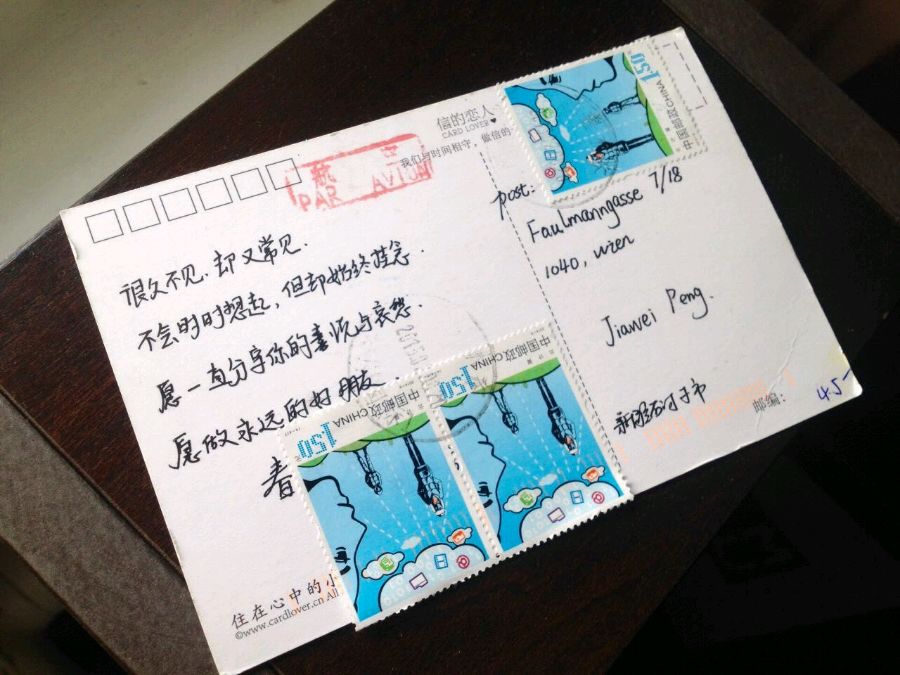 信的恋人
CARD LOVER
我们与时间相守,做信的
航 空
PAR AVION
很久不见,却又常见.
不会时时想起,但却始终挂念.
愿一直分享你的喜悦与哀愁.
愿做永远的好朋友.
春
住在心中的小
©www.cardlover.cn All
post:
Faulmanngasse 7/18
1040, wien
Jiawei Peng.
邮编:
45-
1.50元
中国邮政 CHINA
1.50元
中国邮政 CHINA
1.50元
中国邮政 CHINA